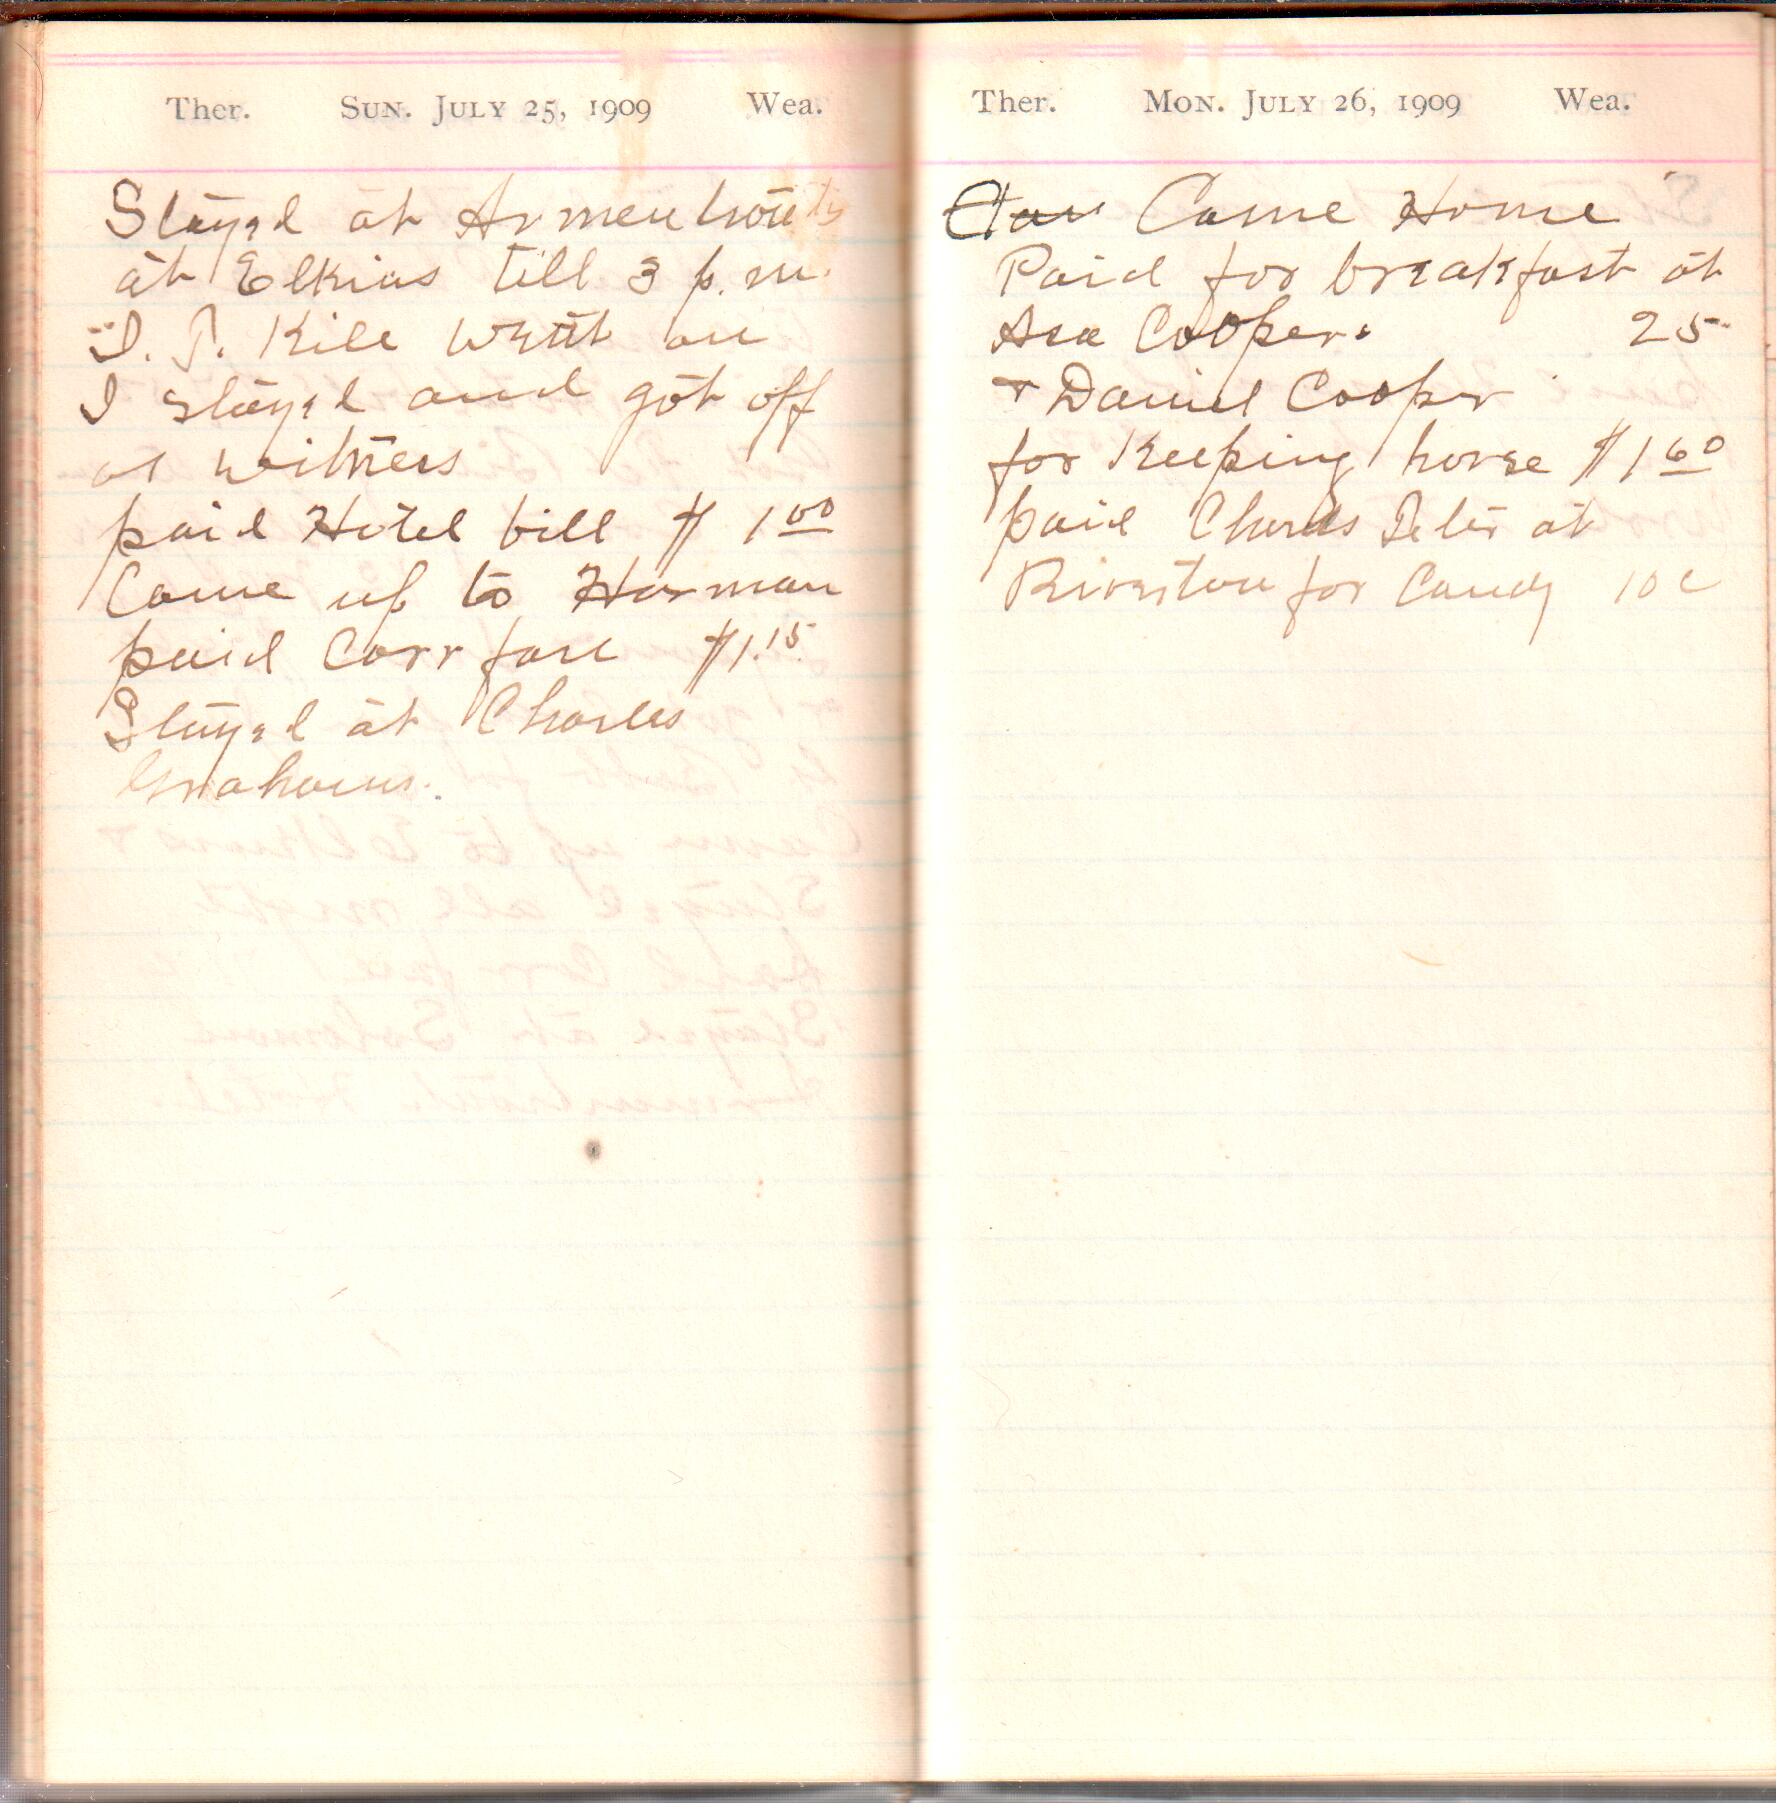 Ther. Sun. July 25, 1909 Wea.
Stayed at Armentrouts
at Elkins till 3 p.m.
I. P. Kile went on
I stayed and got off
as witness
paid Hotel bill $ 1 00
Came up to Harman
paid Carr fare $1.15
Stayed at Charles
Grahams.
Ther. Mon. July 26, 1909 Wea.
Came Home
Paid for breakfast at
Asa Coopers 25
+ Daniel Cooper
for Keeping horse $ 1 60
paid Charles at
Riverton for Candy 10 c